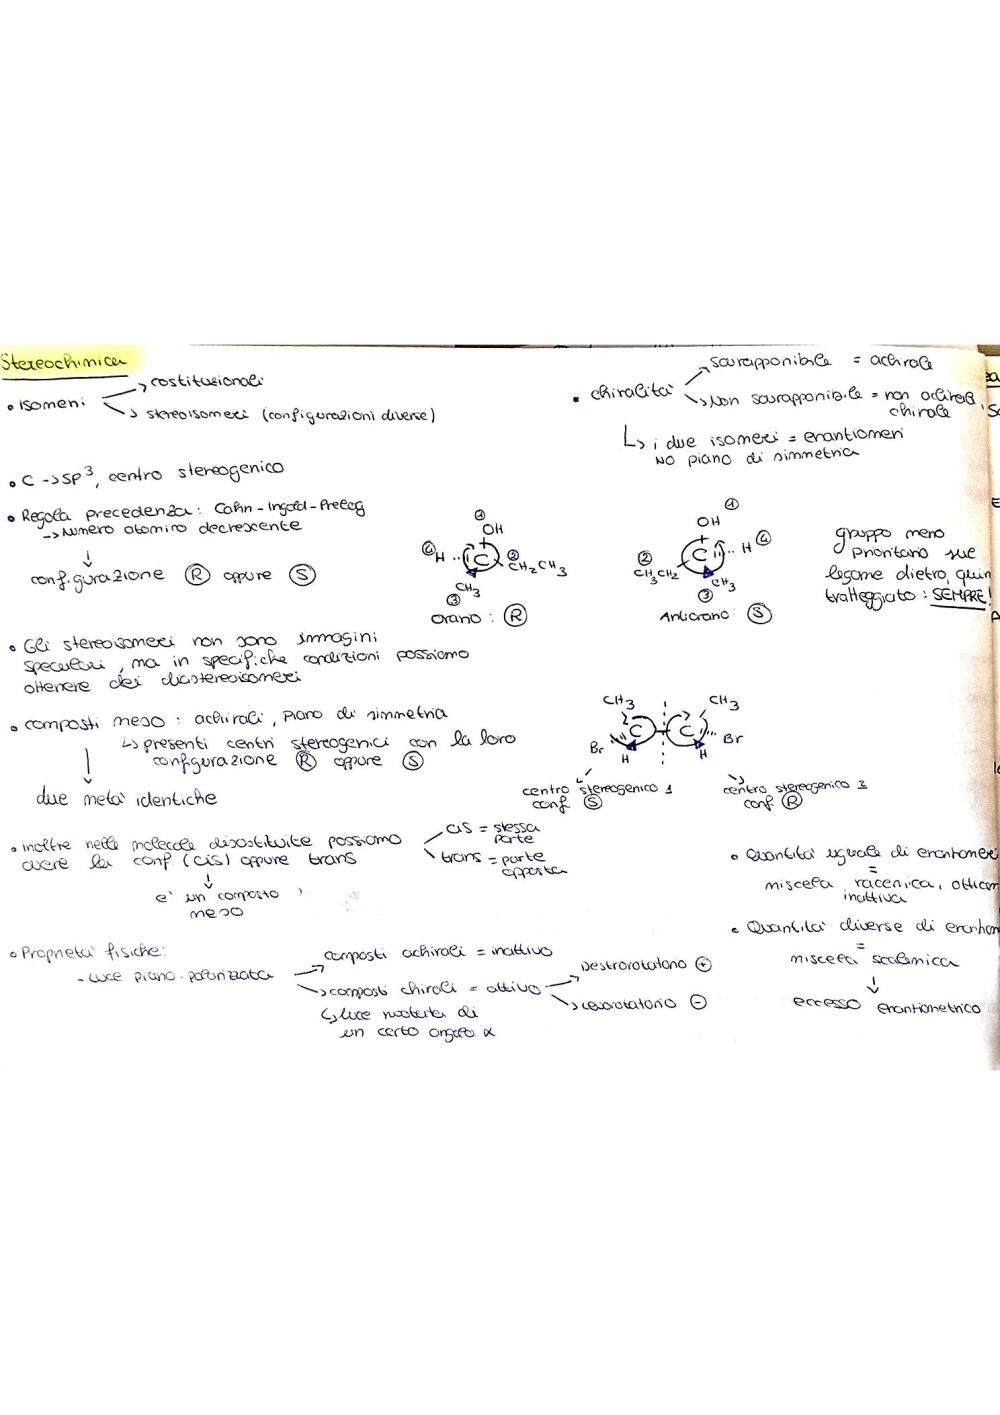 Stereochimica
• Isomeri
→ costituzionali
→ stereoisomeri (configurazioni diverse)
• chiralità
→ sovrapponibile = achirale
→ Non sovrapponibile = non achirale,
chirale
↳ i due isomeri = enantiomeri
NO piano di simmetria
• C → sp³, centro stereogenico
• Regola precedenza: Cahn-Ingold-Prelog
→ Numero atomico decrescente
↓
configurazione Ⓡ oppure Ⓢ
①
OH
④ H C ② CH₂CH₃
CH₃
③
Orario: Ⓡ
①
OH
② CH₃CH₂ C H ④
CH₃
③
Antiorario: Ⓢ
gruppo meno
prioritario sul
legame dietro, quin
tratteggiato: SEMPRE!
• Gli stereoisomeri non sono immagini
speculari, ma in specifiche condizioni possiamo
ottenere dei diastereoisomeri
• composti meso: achirali, piano di simmetria
↳ presenti centri stereogenici con la loro
configurazione Ⓡ oppure Ⓢ
↓
due metà identiche
CH₃ CH₃
C C
Br H H Br
centro stereogenico 1
conf Ⓢ
centro stereogenico 2
conf Ⓡ
• inoltre nelle molecole disostituite possiamo
avere la conf (cis) oppure trans
cis = stessa
parte
trans = parte
opposta
↓
è un composto
meso
• Quantità uguale di enantiomeri
=
miscela racemica, otticam
inattiva
• Quantità diverse di enantiom
=
miscela scalemica
↓
eccesso enantiometrico
• Proprietà fisiche:
- Luce piano-polarizzata
→ composti achirali = inattivo
→ composti chirali = attivo
↳ luce ruotata di
un certo angolo α
→ Destrorotatorio ⊕
→ Levorotatorio ⊖